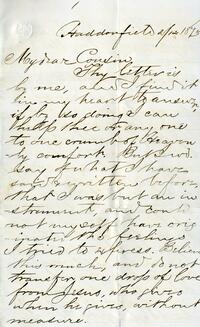 Haddonfield 2/12 18
My dear Cousin,
Thy letter is
by me, and I find it
in my heart to answer
if by so doing I can
help thee or any one
to one crumb of Heaven
ly comfort. But I wd.
say of what I have
said & written before
that I was but an in
strument, and could
not myself have orig
inated the feelings
I tried to express. Believe
this much, and do not
transfer one drop of love
from Jesus, who gives
when he gives, without
measure.